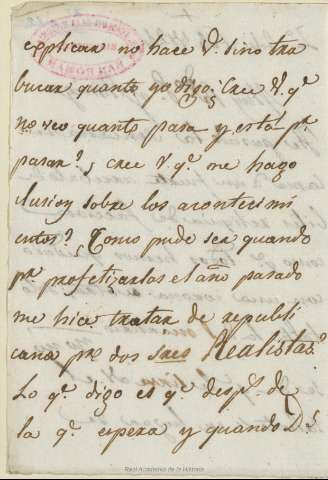 explicar no hace V. sino tra
bucar quanto yo digo; Cree V. qe
no veo quanto pasa y está pr.
pasar? ¿ cree V. qe me hago
ilusion sobre los acontecimi
entos? ¿Como pude ser quando
pr. profetizarlos el año pasado
me hice tratar de republi
cana pr. dos Sres Realistas?
Lo qe. digo es qe desps. de
la qe. espera y quando Ds.
Real Academia de la Historia